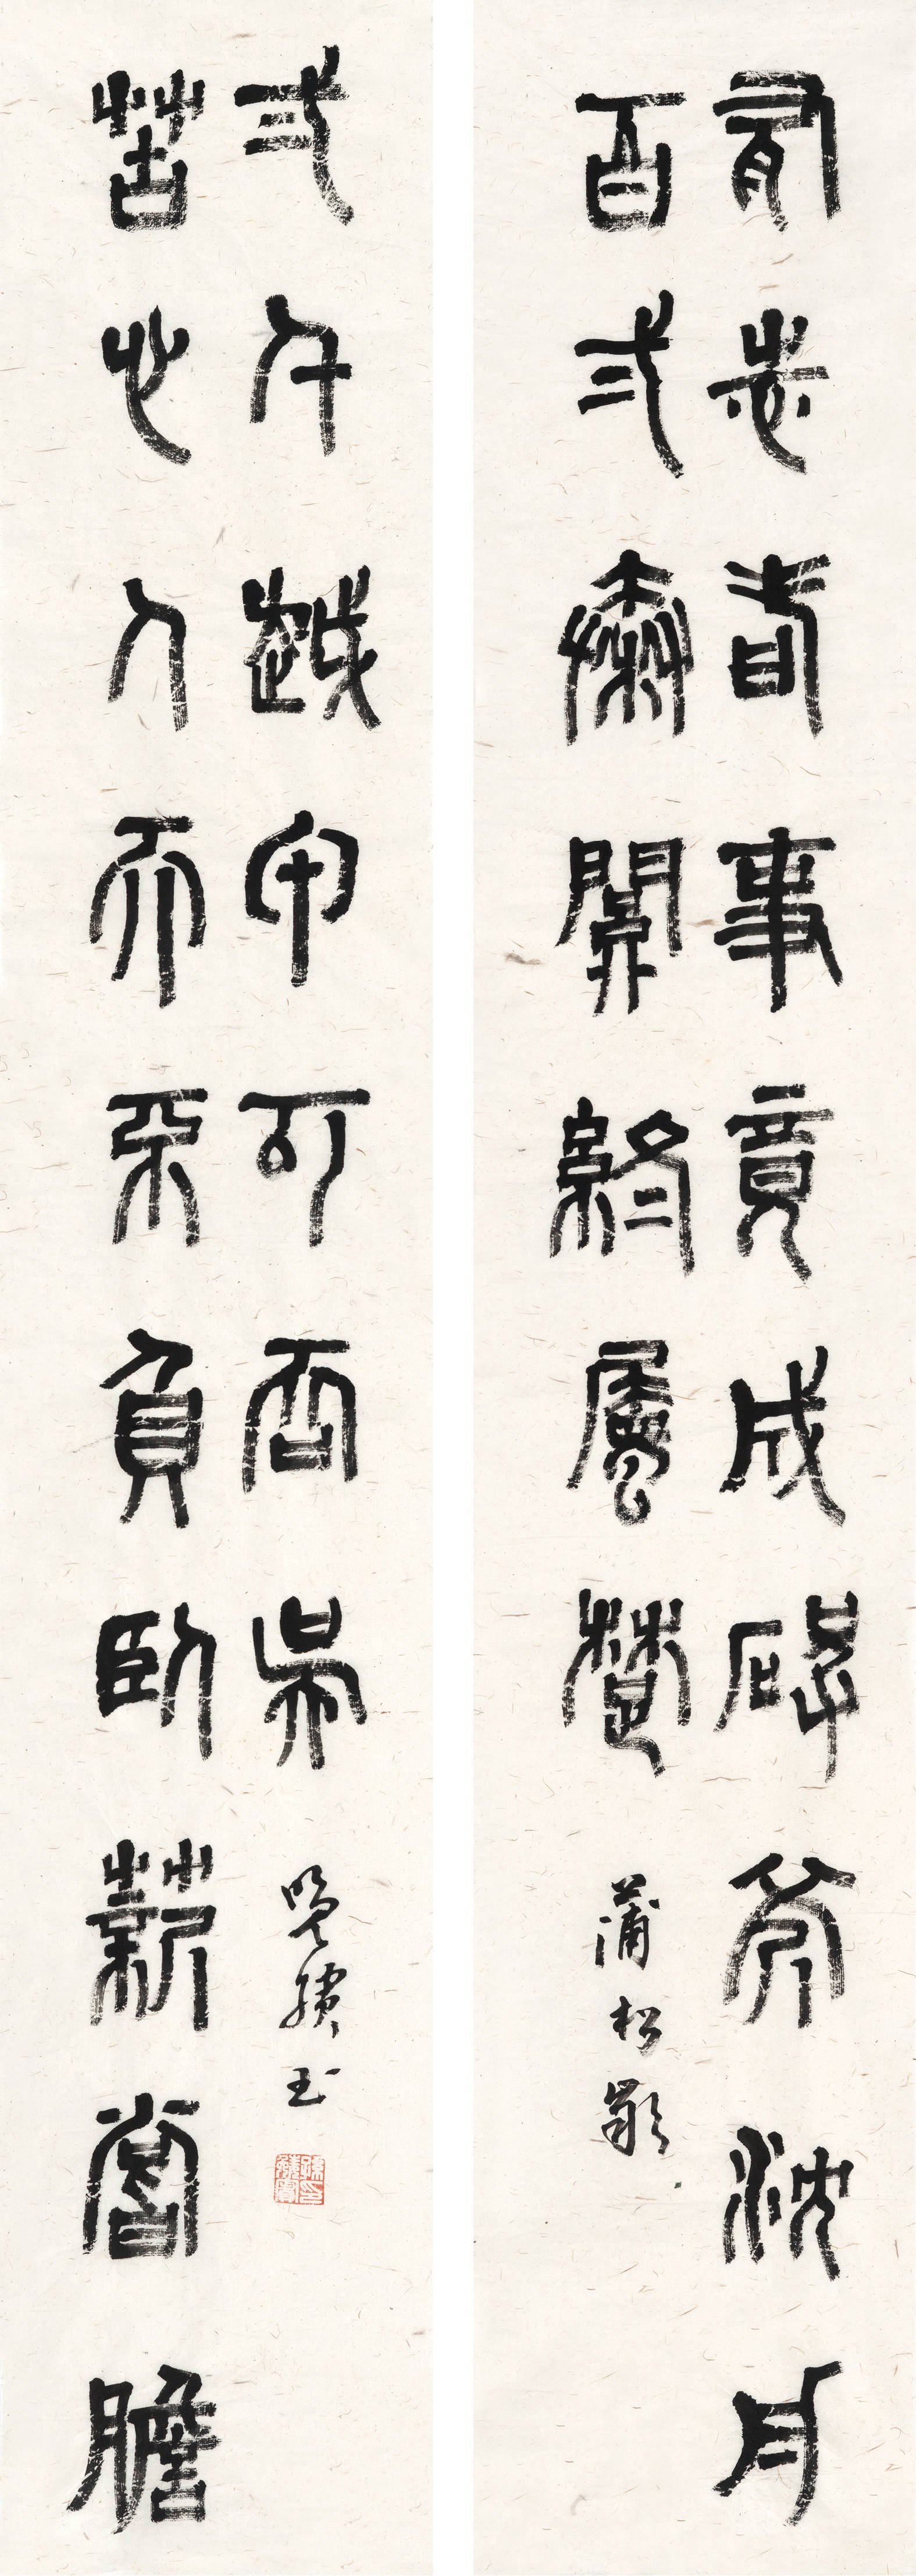 有志者事竟成破釜沈舟
百弍秦關終屬楚
蒲松齡
苦心人天不負臥薪嘗膽
弎千越甲可吞吳